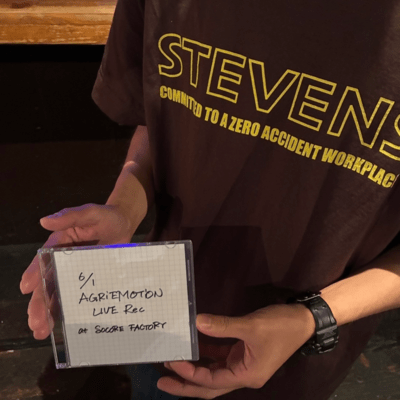 STEVENS
COMMITTED TO A ZERO ACCIDENT WORKPLACE
6/1
AGRIEMOTION
LIVE Rec
at SOCORE FACTORY